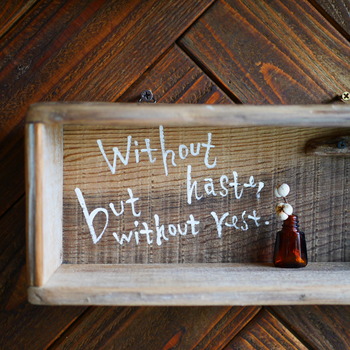 Without
but haste,
without rest.